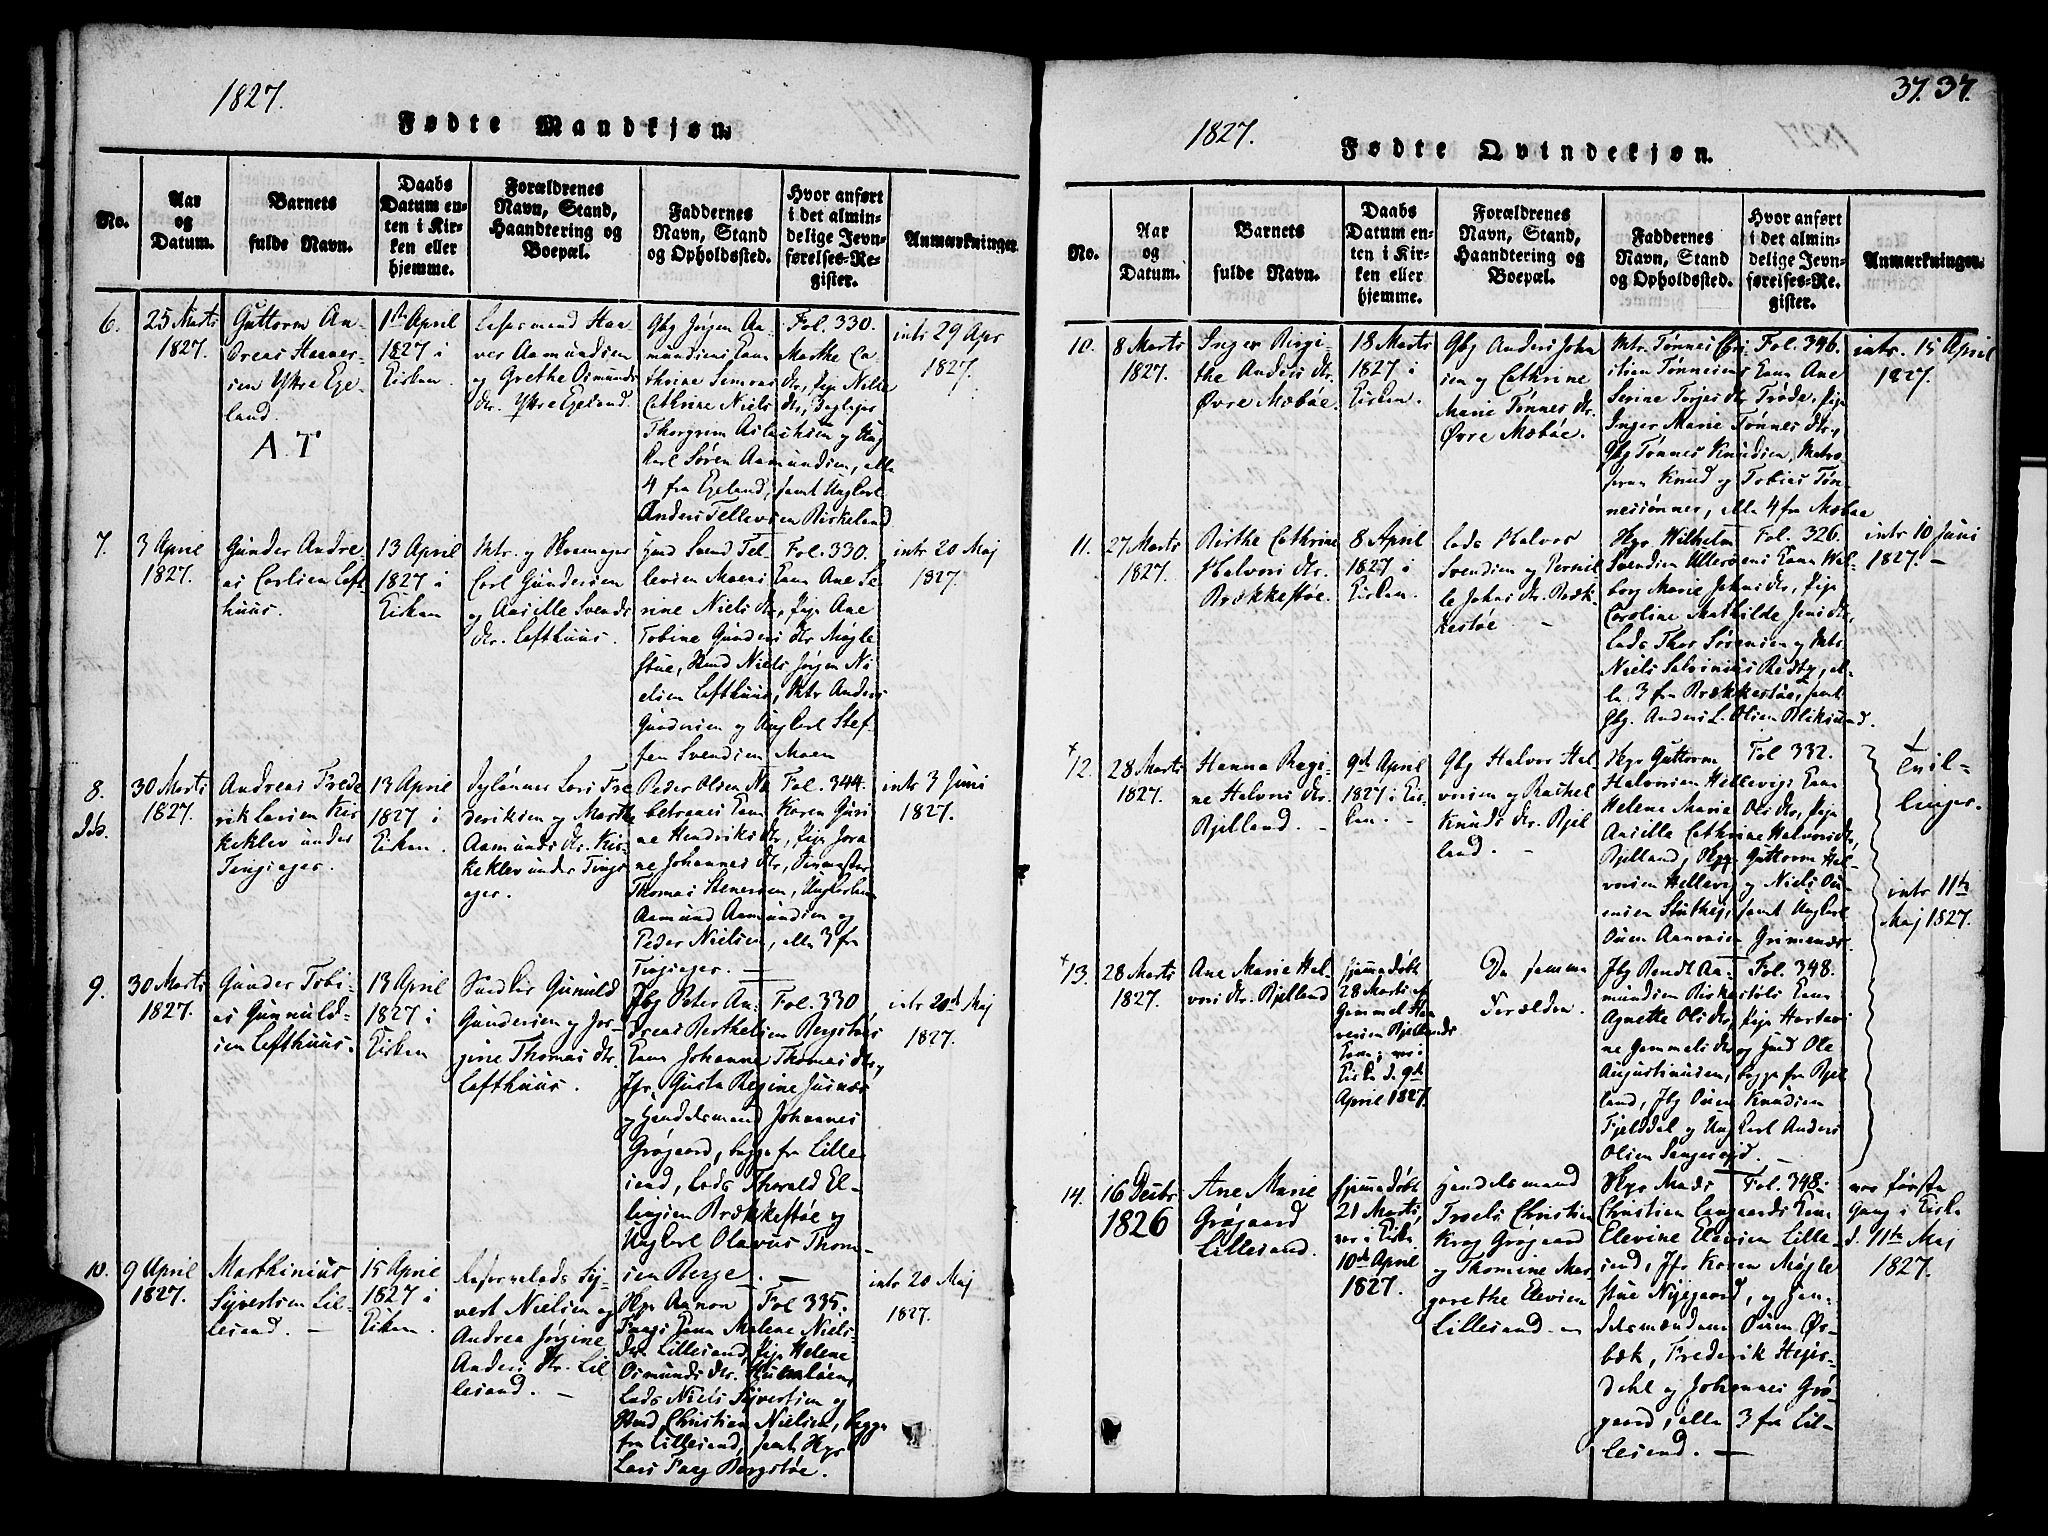 1827.
Fødte Mandkjøn.
No.
Aar
og
Datum.
Barnets
fulde Navn.
Daabs
Datum en-
ten i Kir-
ken eller
hjemme.
Forældrenes
Navn, Stand,
Haandtering og
Boepæl.
Faddernes
Navn, Stand
og Opholdssted.
Hvor anført
i det almin-
delige Jevn-
førelses-Re-
gister.
Anmærkninger.
6.
25 Marts
1827.
Guttorm An-
dreas Haaver-
sen Ytre Ege-
land.
A.T
1ste April
1827 i
Kirken.
Haa-
ver Aamundsen
og Grethe Osmunds
dtr. Ytre Egeland.
Gbg Jørgen Aa-
mundsens Kone Marthe Ca-
thrine Simons dtr, Pige Nille
Cathrine Niels dtr,
Thorgrim Aslachsen og Ung
Karl Søren Aamundsen, alle
4 fra Egeland, samt Ungkarl
Anders Tellevsen Birkeland
Fol. 330.
intr 29 Apr
1827.
7.
3 April
1827.
Gunder Andre-
as Carlsen Left-
huus.
13 April
1827 i
Kirken
Mtr. og Skomager
Carl Gundersen
og Aasille Svends
dtr. Lefthuus.
Hmd Svend Tel-
levsen Moens Kone Ane Se-
rine Niels dtr, Pige Ane
Tobine Gunders dtr Møgle-
stue, Hmd Niels Jørgen Ni-
elsen Lefthuus, Mtr Anders
Gundersen og Ungkarl Stef-
fen Svendsen Moen
Fol. 330.
intr 20 Maj
1827.
8.
30 Marts
1827.
Andreas Frede-
rik Larsen Kir-
keklev under
Tingsager.
13 April
1827 i
Kirken.
Lars Fre-
deriksen og Marthe
Aamunds dtr. Kir-
keklev under Tings-
ager.
Peder Olsen
Kone Karen Guri-
ne Hendriks dtr, Pige Jora-
ne Johannes dtr,
Thomas Stenersen, Ungkarlene
Aamund Aamundsen og
Peder Nielsen, alle 3 fra
Tingsager.
Fol. 344.
intr 3 Juni
1827.
9.
30 Marts
1827.
Gunder Tobi-
as Gunnuld-
sen Lefthuus.
13 April
1827 i
Kirken
Gunuld
Gundersen og Jør-
gine Thomas dtr.
Lefthuus.
Peter An-
dreas Berthelsen Bergstøes
Kone Johanne Thomas dtr,
Jfr. Gusta Regine Jusnæs
og Handelsmand Johannes
Grøgaard, begge fra Lille-
sand, Lods Thorald El-
lingsen Brækkestøe og
Ungkarl Olavus Thom-
sen Berge.
Fol. 330
intr 20de Maj
1827.
10.
9 April
1827.
Marthinius
Syvertsen Lil-
lesand.
15 April
1827 i
Kirken.
Reservelods Sy-
vert Nielsen og
Andrea Jørgine
Anders dtr. Lil-
lesand.
Skpr Aanon
Faags Kone Malene Niels-
dtr Lillesand, Pige Helene
Osmunds dtr.
Lods Niels Syvertsen og
Hmd Christian Nielsen, begge
fra Lillesand, samt Skpr
Lars Faag Bergstøe.
Fol 335.
intr 20 Maj
1827.
37. 37.
1827.
Fødte Qvindekjøn.
No.
Aar
og
Datum.
Barnets
fulde Navn.
Daabs
Datum en-
ten i Kir-
ken eller
hjemme.
Forældrenes
Navn, Stand,
Haandtering og
Boepæl.
Faddernes
Navn, Stand
og Opholdssted.
Hvor anført
i det almin-
delige Jevn-
førelses-Re-
gister.
Anmærkninger.
10.
8 Marts
1827.
Inger Birgi-
the Anders dtr.
Øvre Mæbøe.
18 Marts
1827 i
Kirken.
Gbg Anders John-
sen og Cathrine
Marie Tønnes dtr.
Øvre Mæbøe.
Mtr. Tønnes Chri-
stian Tønnesens Kone Ane
Serine Terjes dtr Trøde, Pige
Inger Marie Tønnes dtr,
Gbg Tønnes Knudsen, Matro-
serne Knud og Tobias Tøn-
nessønner, alle 4 fra Mæbøe
Fol. 346.
intr. 15 April
1827.
11.
27 Marts
1827.
Birthe Cathrine
Halvors dtr.
Brækkestøe.
8 April
1827 i
Kirken.
Lods Halvor
Svendsen og Pernil-
le Johns dtr. Bræk-
kestøe.
Skpr Wilhelm
Svendsen Ulleröens Kone Wal-
borg Marie Johns dtr, Pige
Caroline Mathilde Jens dtr,
Lods Thor Sørensen og Mtr
Niels Salvinius Redty, al-
le 3 fra Brækkestøe, samt
Gbg. Anders L. Olsen Bliksund.
Fol. 326.
intr 10 Juni
1827.
+12.
28 Marts
1827.
Hanna Regi-
ne Halvors dtr.
Bjelland.
9de April
1827 i Kir-
ken.
Gbg Halvor Hal-
vorsen og Rachel
Knuds dtr. Bjel-
land.
Skpr Guttorm
Halvorsen Hellevigs Kone
Helene Marie Ols dtr, Pige
Aasille Cathrine Halvors dtr,
Bjelland, Skpr Guttorm Hal-
vorsen Hellevig og Niels Ou-
ensen Stuthej, samt Ungkarl
Ouen Aanonsen Grimenæs.
Fol 332.
+
Tvil-
linger.
intr 11te
Maj 1827.
+13.
28 Marts
1827.
Ane Marie Hal-
vors dtr. Bjelland
Hjemmedøbt
28 Marts af
Gammel Haa-
versen Bjellands
Kone, var i
Kirke d. 9de
April 1827.
De samme
Forældre.
Gbg Bendt Aa-
mundsen Birkestøls Kone
Agnethe Ols dtr, Pige Hartevi-
ne Gammels dtr og Hmd Ole
Augustinusen, begge fra Bjel-
land, Gbg Ouen Knudsen
Fjelddal og Ungkarl Anders
Olsen Sangereid.
Fol. 348.
14.
16 Decbr
1826
Ane Marie
Grøgaard
Lillesand.
Hjemmedøbt
21 Marts,
var i Kirke
10de April
1827.
Handelsmand
Troels Christian
Krog Grøgaard
og Thomine Mar-
garethe Elevsen
Lillesand.
Skpr Mads
Christian Langaards Kone
Elevine Elevsen Lille-
sand, Jfr Karen Møgle-
stue Nygaard, og Han-
delsmændene Ouen Ør-
bæk, Frederik Hejer-
dahl og Johannes Grø-
gaard, alle 3 fra Lil-
lesand.
Fol. 348.
var første
Gang i Kirke
d. 11te Maj
1827.